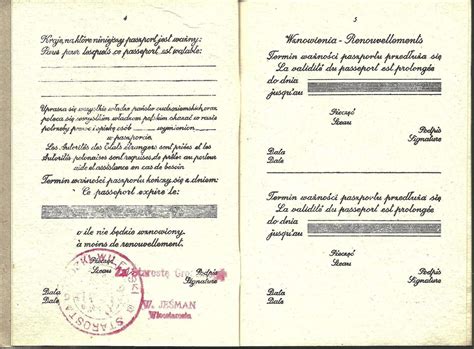 4
Kraje, na które niniejszy paszport jest ważny:
Pays pour lesquels ce passeport est valable:
Uprasza się wszystkie władze państw cudzoziemskich, oraz
poleca się wszystkim władzom polskim okazać w razie
potrzeby pomoc i opiekę osób wymienion
w paszporcie.
Les Autorités des Etats étrangers sont priées et les
Autorités polonaises sont requises, de prêter au porteur
aide et assistance en cas de besoin.
Termin ważności paszportu kończy się z dniem:
Ce passeport expire le:
o ile nie będzie wznowiony
à moins de renouvellement.
Pieczęć
Sceau
Za Starostę
Podpis
Signature
W. JEŚMAN
Wicestarosta
STAROSTA
Data
Date
5
Wznowienia - Renouvellements
Termin ważności paszportu przedłuża się
La validité du passeport est prolongée
do dnia
jusqu'au
Pieczęć
Sceau
Podpis
Signature
Data
Date
Termin ważności paszportu przedłuża się
La validité du passeport est prolongée
do dnia
jusqu'au
Pieczęć
Sceau
Podpis
Signature
Data
Date